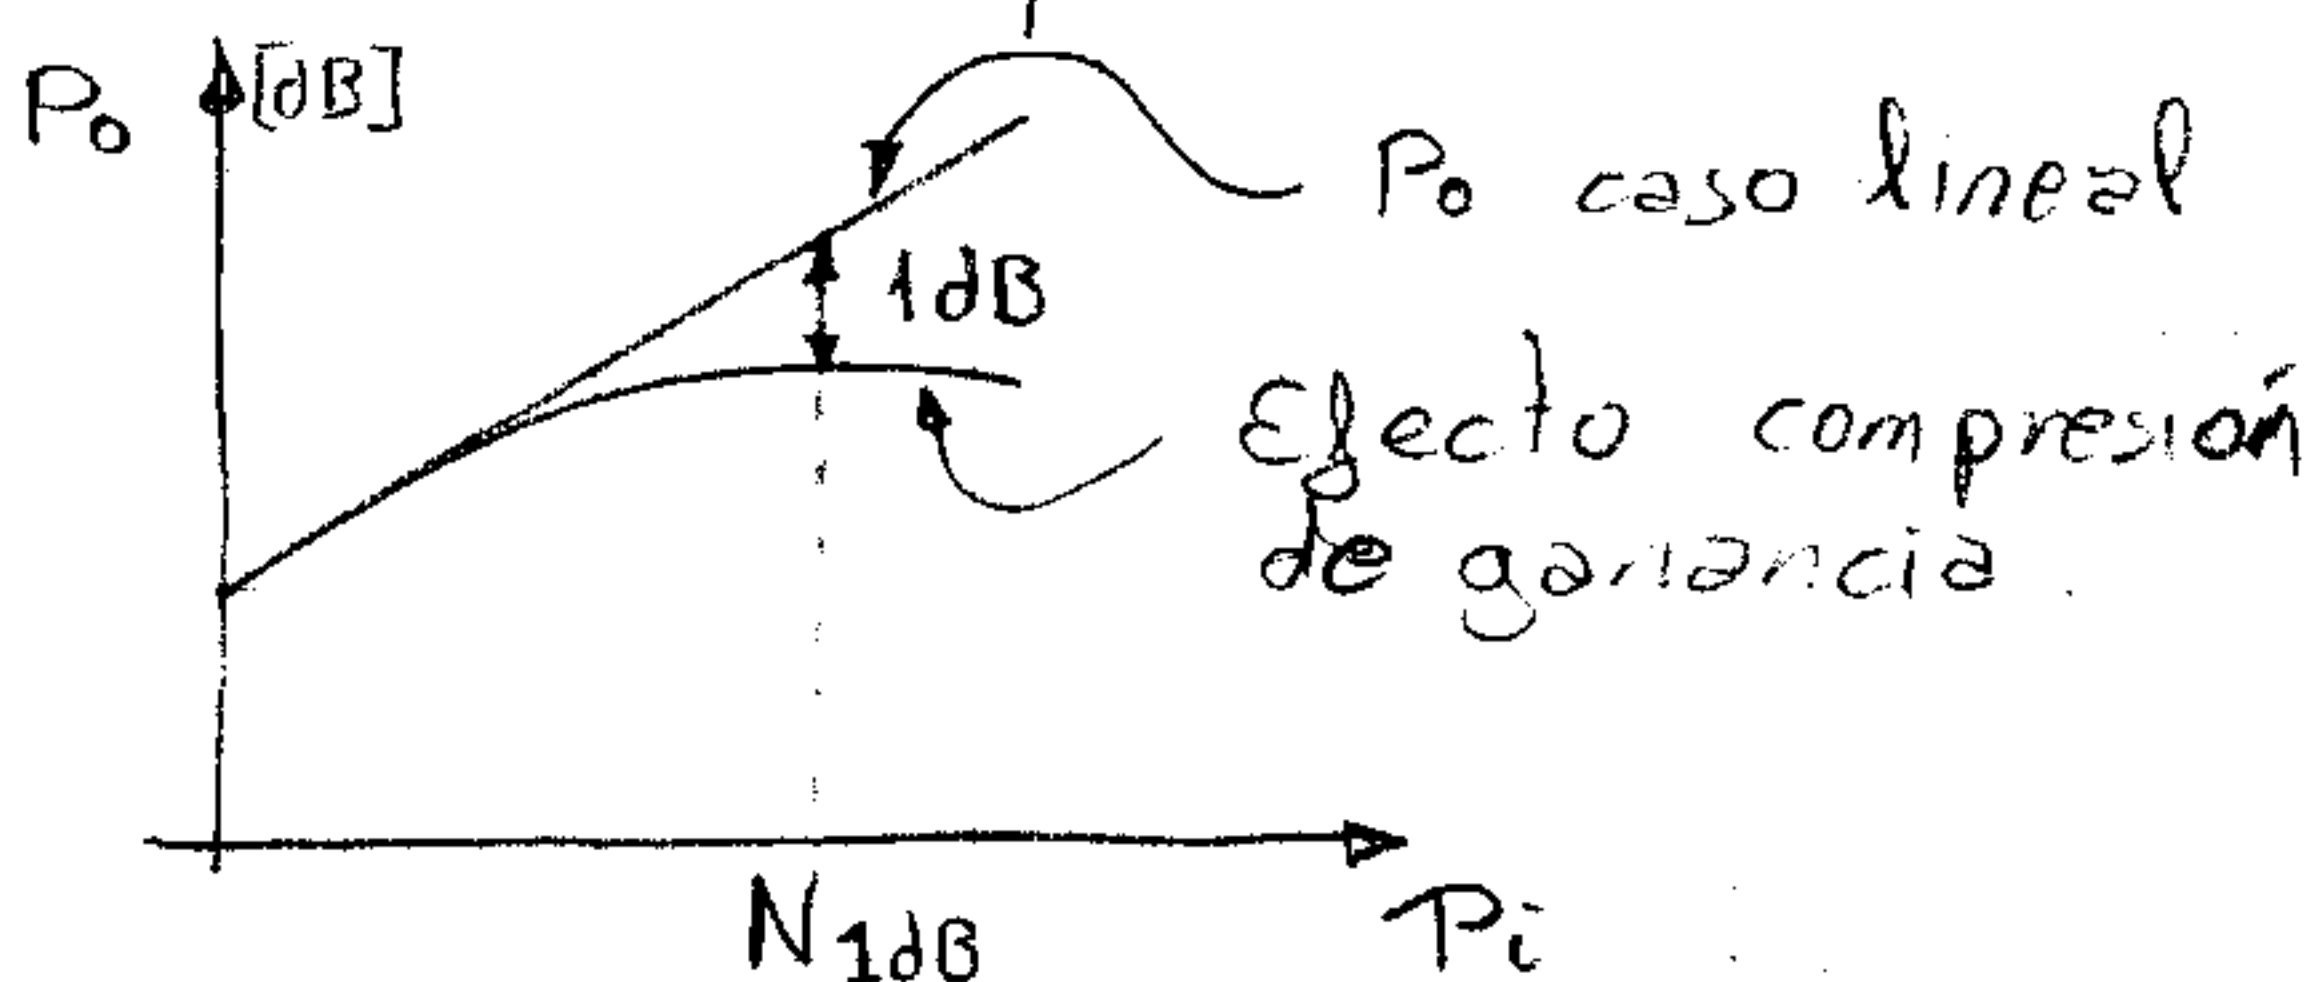 Po [dB]
Po caso lineal
1dB
Efecto compresión
de ganancia
N1dB
Pi